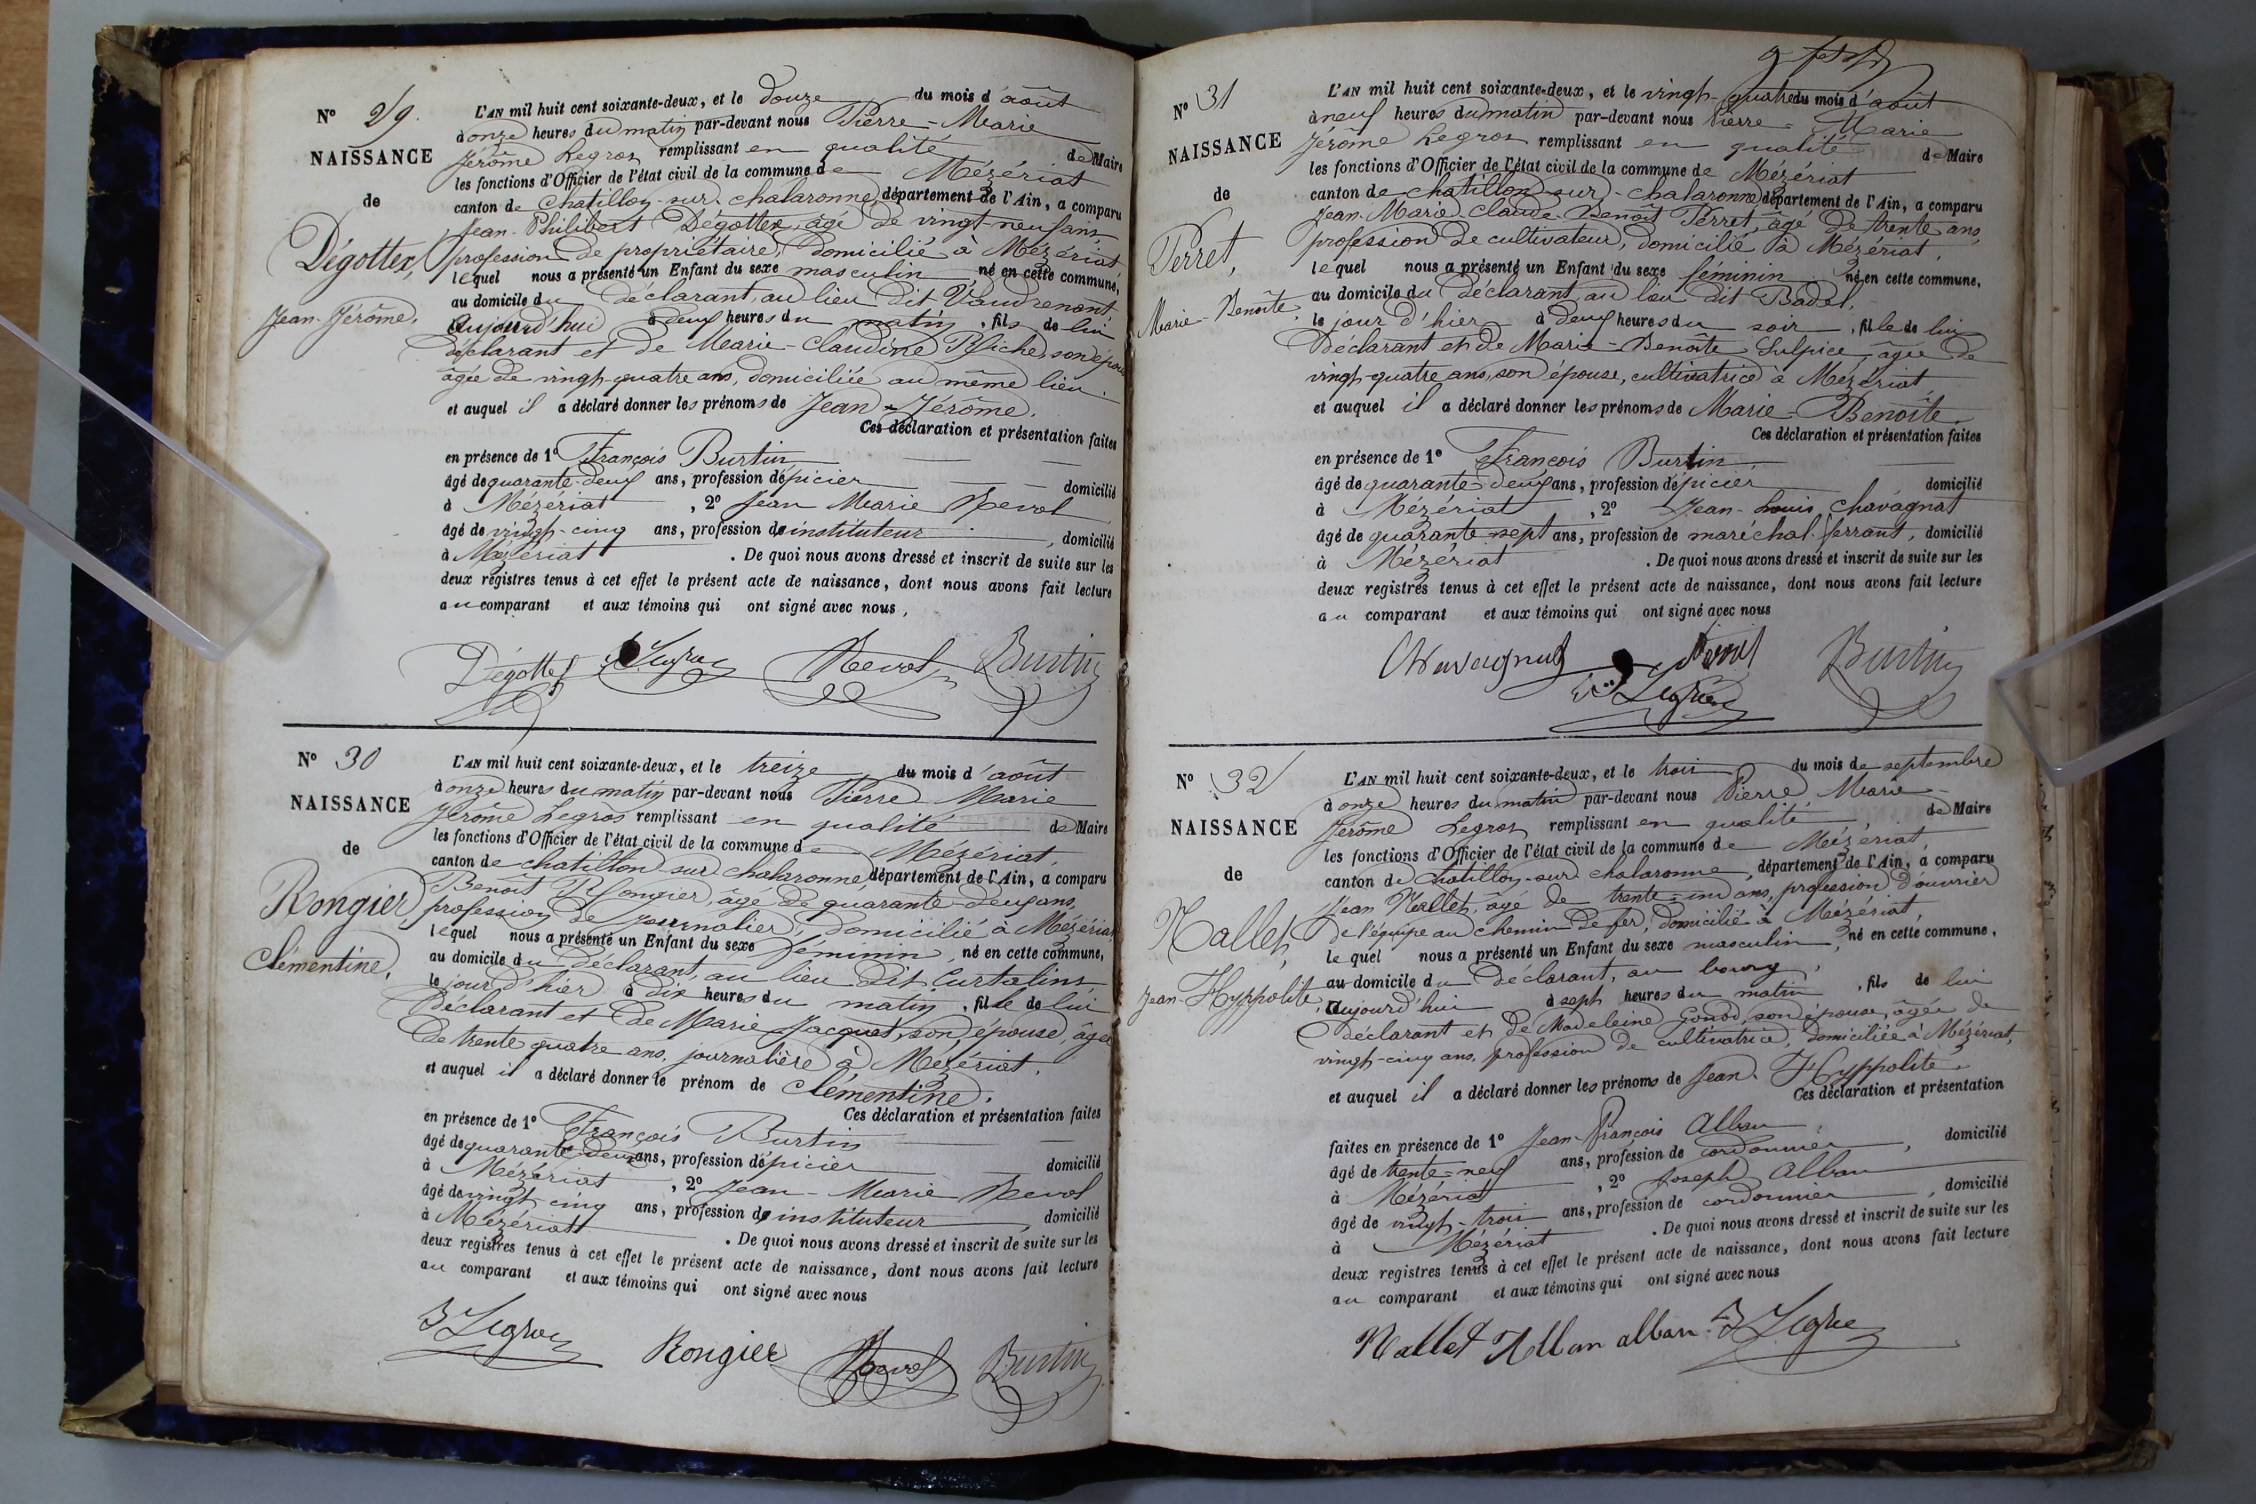 N° 29.
NAISSANCE
de
Dégottex,
Jean-Jérôme.
L'AN mil huit cent soixante-deux, et le douze du mois d'août
à onze heures du matin par-devant nous Pierre-Marie
Jérôme Legros remplissant en qualité de Maire
les fonctions d'Officier de l'état civil de la commune de Mézériat
canton de Chatillon-sur-chalaronne, département de l'Ain, a comparu
Jean-Philibert Dégottex, âgé de vingt-neuf ans,
profession de propriétaire, domicilié à Mézériat,
lequel nous a présenté un Enfant du sexe masculin né en cette commune,
au domicile du déclarant, au lieu dit Vaudrenant
Aujourd'hui à deux heures du matin, fils de lui
déclarant et de Marie-Claudine Miche, son épouse
âgée de vingt-quatre ans, domiciliée au même lieu.
et auquel il a déclaré donner les prénoms de Jean-Jérôme.
Ces déclaration et présentation faites
en présence de 1° François Burtin
âgé de quarante-deux ans, profession d'épicier domicilié
à Mézériat, 2° Jean Marie Revol
âgé de vingt-cinq ans, profession de instituteur, domicilié
à Mézériat. De quoi nous avons dressé et inscrit de suite sur les
deux registres tenus à cet effet le présent acte de naissance, dont nous avons fait lecture
au comparant et aux témoins qui ont signé avec nous,
Dégottex J Legros Revol Burtin
N° 30
NAISSANCE
de
Rongier
Clémentine.
L'AN mil huit cent soixante-deux, et le treize du mois d'août
à onze heures du matin par-devant nous Pierre Marie
Jérôme Legros remplissant en qualité de Maire
les fonctions d'Officier de l'état civil de la commune de Mézériat,
canton de chatillon sur chalaronne, département de l'Ain, a comparu
Benoît Rongier, âgé de quarante-deux ans,
profession de journalier, domicilié à Mézériat
lequel nous a présenté un Enfant du sexe féminin, né en cette commune,
au domicile du déclarant, au lieu dit Curtalins,
le jour d'hier à dix heures du matin, fille de lui
déclarant et de Marie Jacquet, son épouse, âgée
de trente quatre ans, journalière à Mézériat.
et auquel il a déclaré donner le prénom de Clémentine.
Ces déclaration et présentation faites
en présence de 1° François Burtin
âgé de quarante-deux ans, profession d'épicier domicilié
à Mézériat, 2° Jean-Marie Revol
âgé de vingt-cinq ans, profession de instituteur, domicilié
à Mézériat. De quoi nous avons dressé et inscrit de suite sur les
deux registres tenus à cet effet le présent acte de naissance, dont nous avons fait lecture
au comparant et aux témoins qui ont signé avec nous
J Legros Rongier Revol Burtin
N° 31
NAISSANCE
de
Perret,
Marie-Benoîte.
L'AN mil huit cent soixante-deux, et le vingt-quatre du mois d'août
à neuf heures du matin par-devant nous Pierre-Marie
Jérôme Legros remplissant en qualité de Maire
les fonctions d'Officier de l'état civil de la commune de Mézériat
canton de chatillon-sur-chalaronne, département de l'Ain, a comparu
Jean-Marie-Claude-Benoît Perret, âgé de trente ans,
profession de cultivateur, domicilié à Mézériat,
lequel nous a présenté un Enfant du sexe féminin né en cette commune,
au domicile du déclarant, au lieu dit Badel,
le jour d'hier à deux heures du soir, fille de lui
déclarant et de Marie-Benoîte Sulpice, âgée de
vingt-quatre ans, son épouse, cultivatrice à Mézériat
et auquel il a déclaré donner les prénoms de Marie-Benoîte.
Ces déclaration et présentation faites
en présence de 1° François Burtin,
âgé de quarante-deux ans, profession d'épicier domicilié
à Mézériat, 2° Jean-Louis Chavagnat
âgé de quarante-sept ans, profession de maréchal-ferrant, domicilié
à Mézériat. De quoi nous avons dressé et inscrit de suite sur les
deux registres tenus à cet effet le présent acte de naissance, dont nous avons fait lecture
au comparant et aux témoins qui ont signé avec nous
Chavagnat Perret Burtin
J Legros
N° 32
NAISSANCE
de
Nallet,
Jean-Hyppolite,
L'AN mil huit cent soixante-deux, et le trois du mois de septembre
à onze heures du matin par-devant nous Pierre Marie-
Jérôme Legros remplissant en qualité, de Maire
les fonctions d'Officier de l'état civil de la commune de Mézériat,
canton de Chatillon-sur chalaronne, département de l'Ain, a comparu
Jean Nallet, âgé de trente-un ans, profession d'ouvrier
de l'équipe au chemin de fer, domicilié à Mézériat,
lequel nous a présenté un Enfant du sexe masculin, né en cette commune,
au domicile du déclarant, au bourg,
Aujourd'hui à sept heures du matin, fils de lui
déclarant et de Madeleine Gonod, son épouse, âgée de
vingt-cinq ans, profession de cultivatrice, domiciliée à Mézériat,
et auquel il a déclaré donner les prénoms de Jean-Hyppolite.
Ces déclaration et présentation
faites en présence de 1° Jean-François Alban
âgé de trente-neuf ans, profession de cordonnier, domicilié
à Mézériat, 2° Joseph Alban
âgé de vingt-trois ans, profession de cordonnier, domicilié
à Mézériat. De quoi nous avons dressé et inscrit de suite sur les
deux registres tenus à cet effet le présent acte de naissance, dont nous avons fait lecture
au comparant et aux témoins qui ont signé avec nous
Nallet Alban alban J Legros